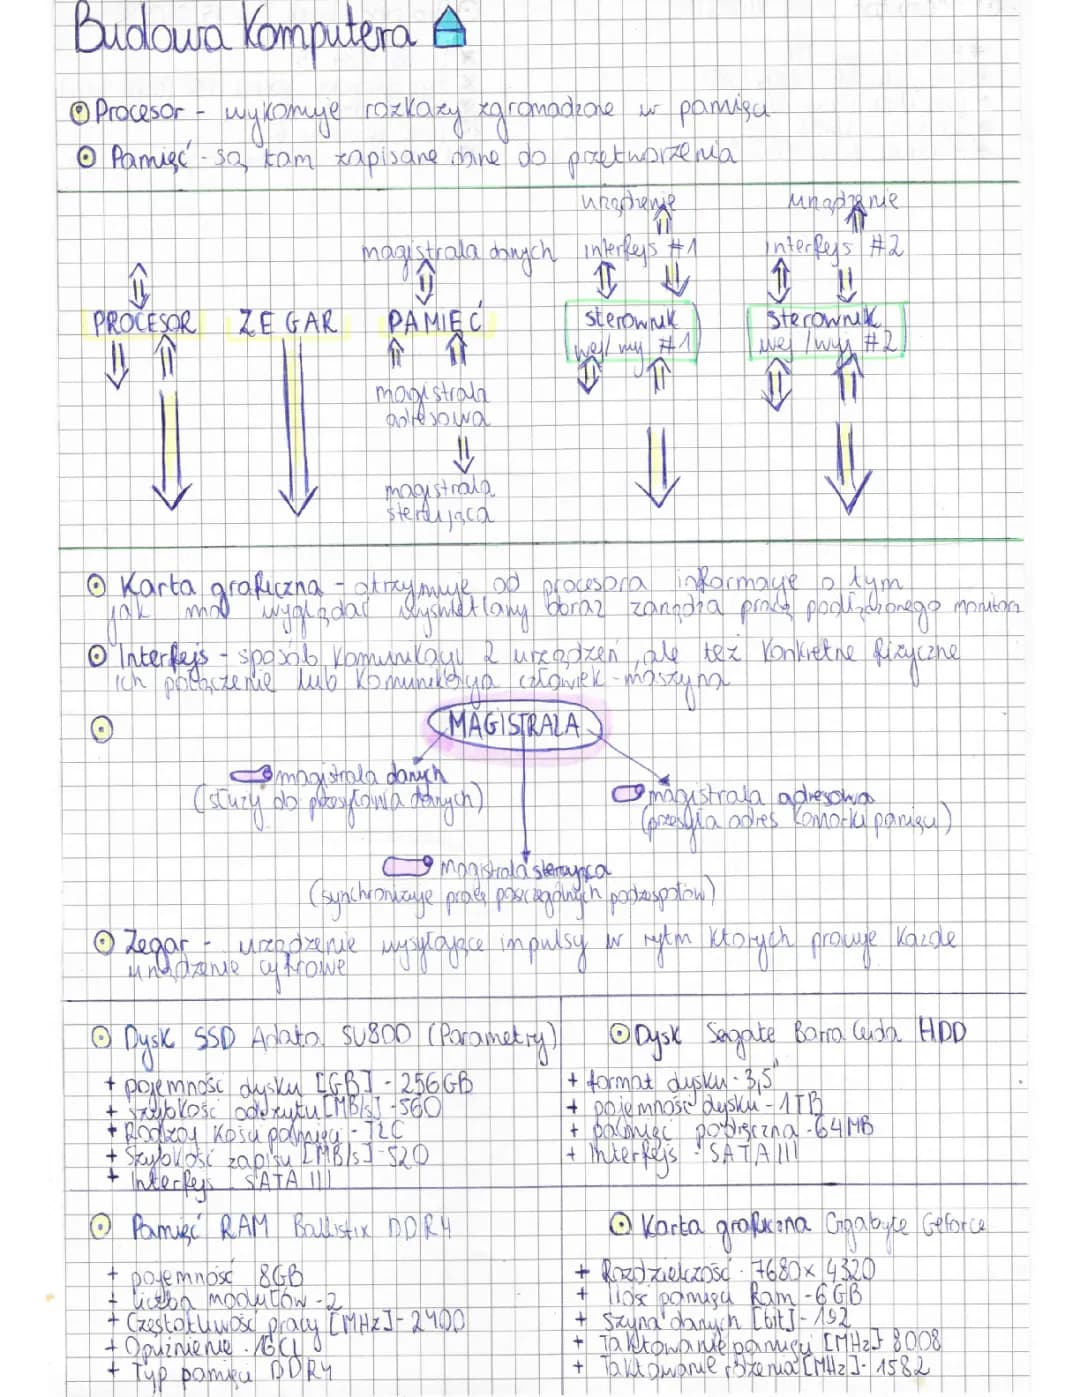 Budowa Komputera
Procesor - wykonuje rozkazy zgromadzone w pamięci
Pamięć - są tam zapisane dane do przetworzenia
urządzenie urządzenie
magistrala danych interfejs #1 interfejs #2
PROCESOR ZEGAR PAMIĘĆ sterownik sterownik
wej/wy #1 wej/wyj #2
magistrala
adresowa
magistrala
sterująca
Karta graficzna - otrzymuje od procesora informacje o tym
jak ma wyglądać wyświetlany obraz zarządza pracą podłączonego monitora
Interfejs - sposób komunikacji 2 urządzeń, ale też konkretne fizyczne
ich połączenie lub komunikacja człowiek-maszyna
MAGISTRALA
magistrala danych
(służy do przesyłania danych)
magistrala adresowa
(przesyła adres komórki pamięci)
magistrala sterująca
(synchronizuje pracę poszczególnych podzespołów)
Zegar - urządzenie wysyłające impulsy w rytm których pracuje każde
urządzenie cyfrowe
Dysk SSD Adata SU800 (Parametry)
+ pojemność dysku [GB] - 256GB
+ szybkość odczytu [MB/s] - 560
+ Rodzaj kości pamięci - TLC
+ Szybkość zapisu [MB/s] - 520
+ Interfejs - SATA III
Dysk Segate Barra Cuda HDD
+ format dysku - 3,5"
+ pojemność dysku - 1TB
+ pamięć podręczna - 64MB
+ Interfejs - SATA III
Pamięć RAM Ballistix DDR4
+ pojemność 8GB
+ liczba modułów - 2
+ Częstotliwość pracy [MHz] - 2400
+ Opóźnienie - 16CL
+ Typ pamięci DDR4
Karta graficzna Gigabyte Geforce
+ Rozdzielczość - 7680x4320
+ Ilość pamięci Ram - 6GB
+ Szyna danych [bit] - 192
+ Taktowanie pamięci [MHz] 8008
+ Taktowanie rdzenia [MHz] - 1582